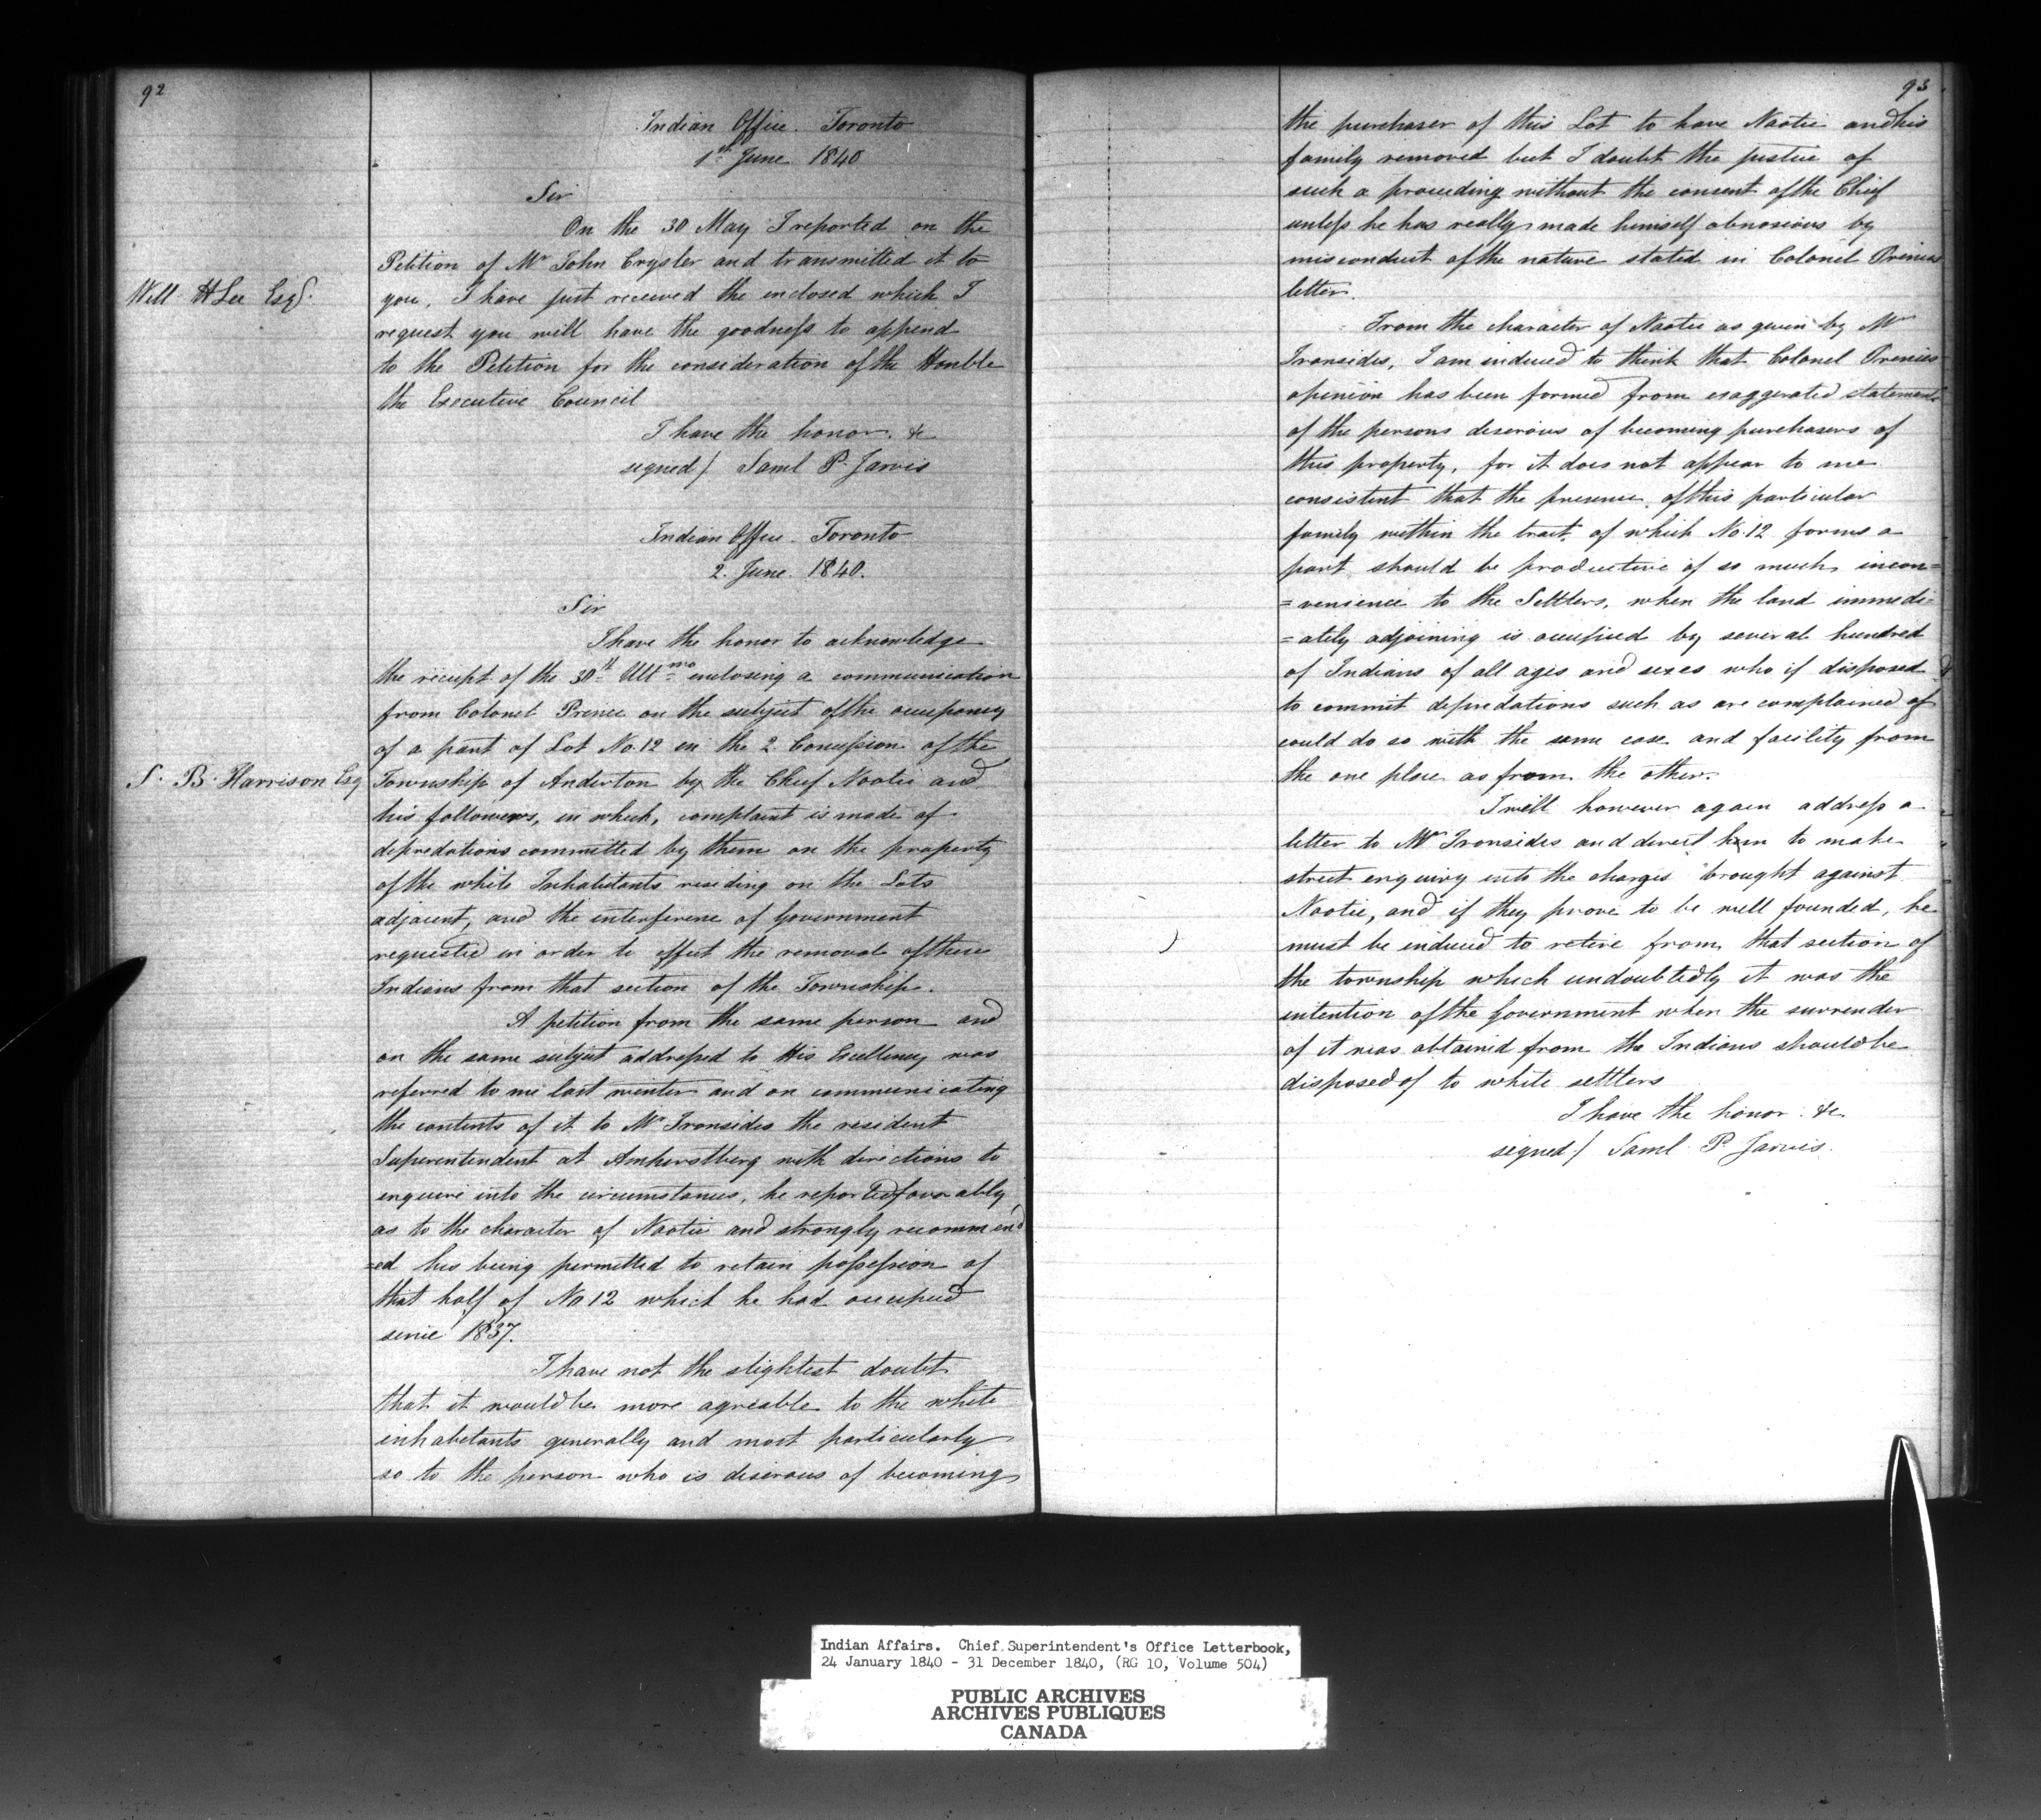 92
Indian Office. Toronto
1st June 1840
Sir
On the 30 May I reported on the
Petition of Mr John Crysler and transmitted it to
Will H Lee Esqr.
you, I have just received the enclosed which I
request you will have the goodness to append
to the Petition for the consideration of the Honble
the Executive Council
I have the honor. &c
signed / Saml P. Jarvis
Indian Office. Toronto
2. June. 1840.
Sir
I have the honor to acknowledge
the receipt of the 30th Ultmo enclosing a communication
from Colonel Prince on the subject of the occupancy
of a part of Lot No. 12 in the 2 Concession of the
S. B. Harrison Esq
Township of Anderton by the Chief Naotie and
his followers, in which, complaint is made of
depredations committed by them on the property
of the white Inhabitants residing on the Lots
adjacent, and the interference of Government
requested in order to effect the removal of these
Indians from that section of the Township.
A petition from the same person and
on the same subject addressed to His Excellency was
referred to me last winter and on communicating
the contents of it to Mr Ironsides the resident
Superintendent at Amherstberg with directions to
enquire into the circumstances, he reported favorably
as to the character of Naotie and strongly recommend
=ed his being permitted to retain possession of
that half of No 12 which he had occupied
since 1837.
I have not the slightest doubt
that it would be more agreable to the white
inhabitants generally and most particularly
so to the person who is desirous of becoming
93
the purchaser of this Lot to have Naotie and his
family removed but I doubt the justice of
such a proceeding without the consent of the Chief
unless he has really made himself obnoxious by
misconduct of the nature stated in Colonel Princes
letter.
From the character of Naotie as given by Mr
Ironsides, I am induced to think that Colonel Princes
opinion has been formed from exaggerated statements
of the persons desirous of becoming purchasers of
this property, for it does not appear to me
consistent that the presence of this particular
family within the tract, of which No. 12 forms a
part should be productive of so much incon=
=venience to the Settlers, when the land immedi=
=ately adjoining is occupied by several hundred
of Indians of all ages and sexes who if disposed
to commit depredations such as are complained of
could do so with the same ease and facility from
the one place as from the other.
I will however again address a
letter to Mr Ironsides and direct him to make
strict enquiry into the charges brought against
Naotie, and if they prove to be well founded, he
must be induced to retire from that section of
the township which undoubtedly it was the
intention of the Government when the surrender
of it was obtained from the Indians should be
disposed of to white settlers
I have the honor. &c
signed / Saml P. Jarvis.
Indian Affairs. Chief Superintendent's Office Letterbook,
24 January 1840 - 31 December 1840, (RG 10, Volume 504)
PUBLIC ARCHIVES
ARCHIVES PUBLIQUES
CANADA